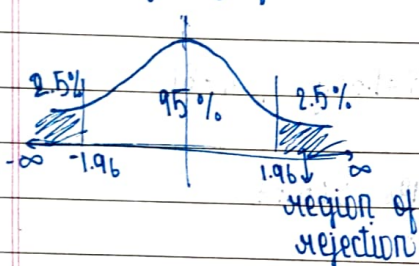 2.5%
95%
2.5%
-∞
-1.96
1.96
∞
region of
rejection